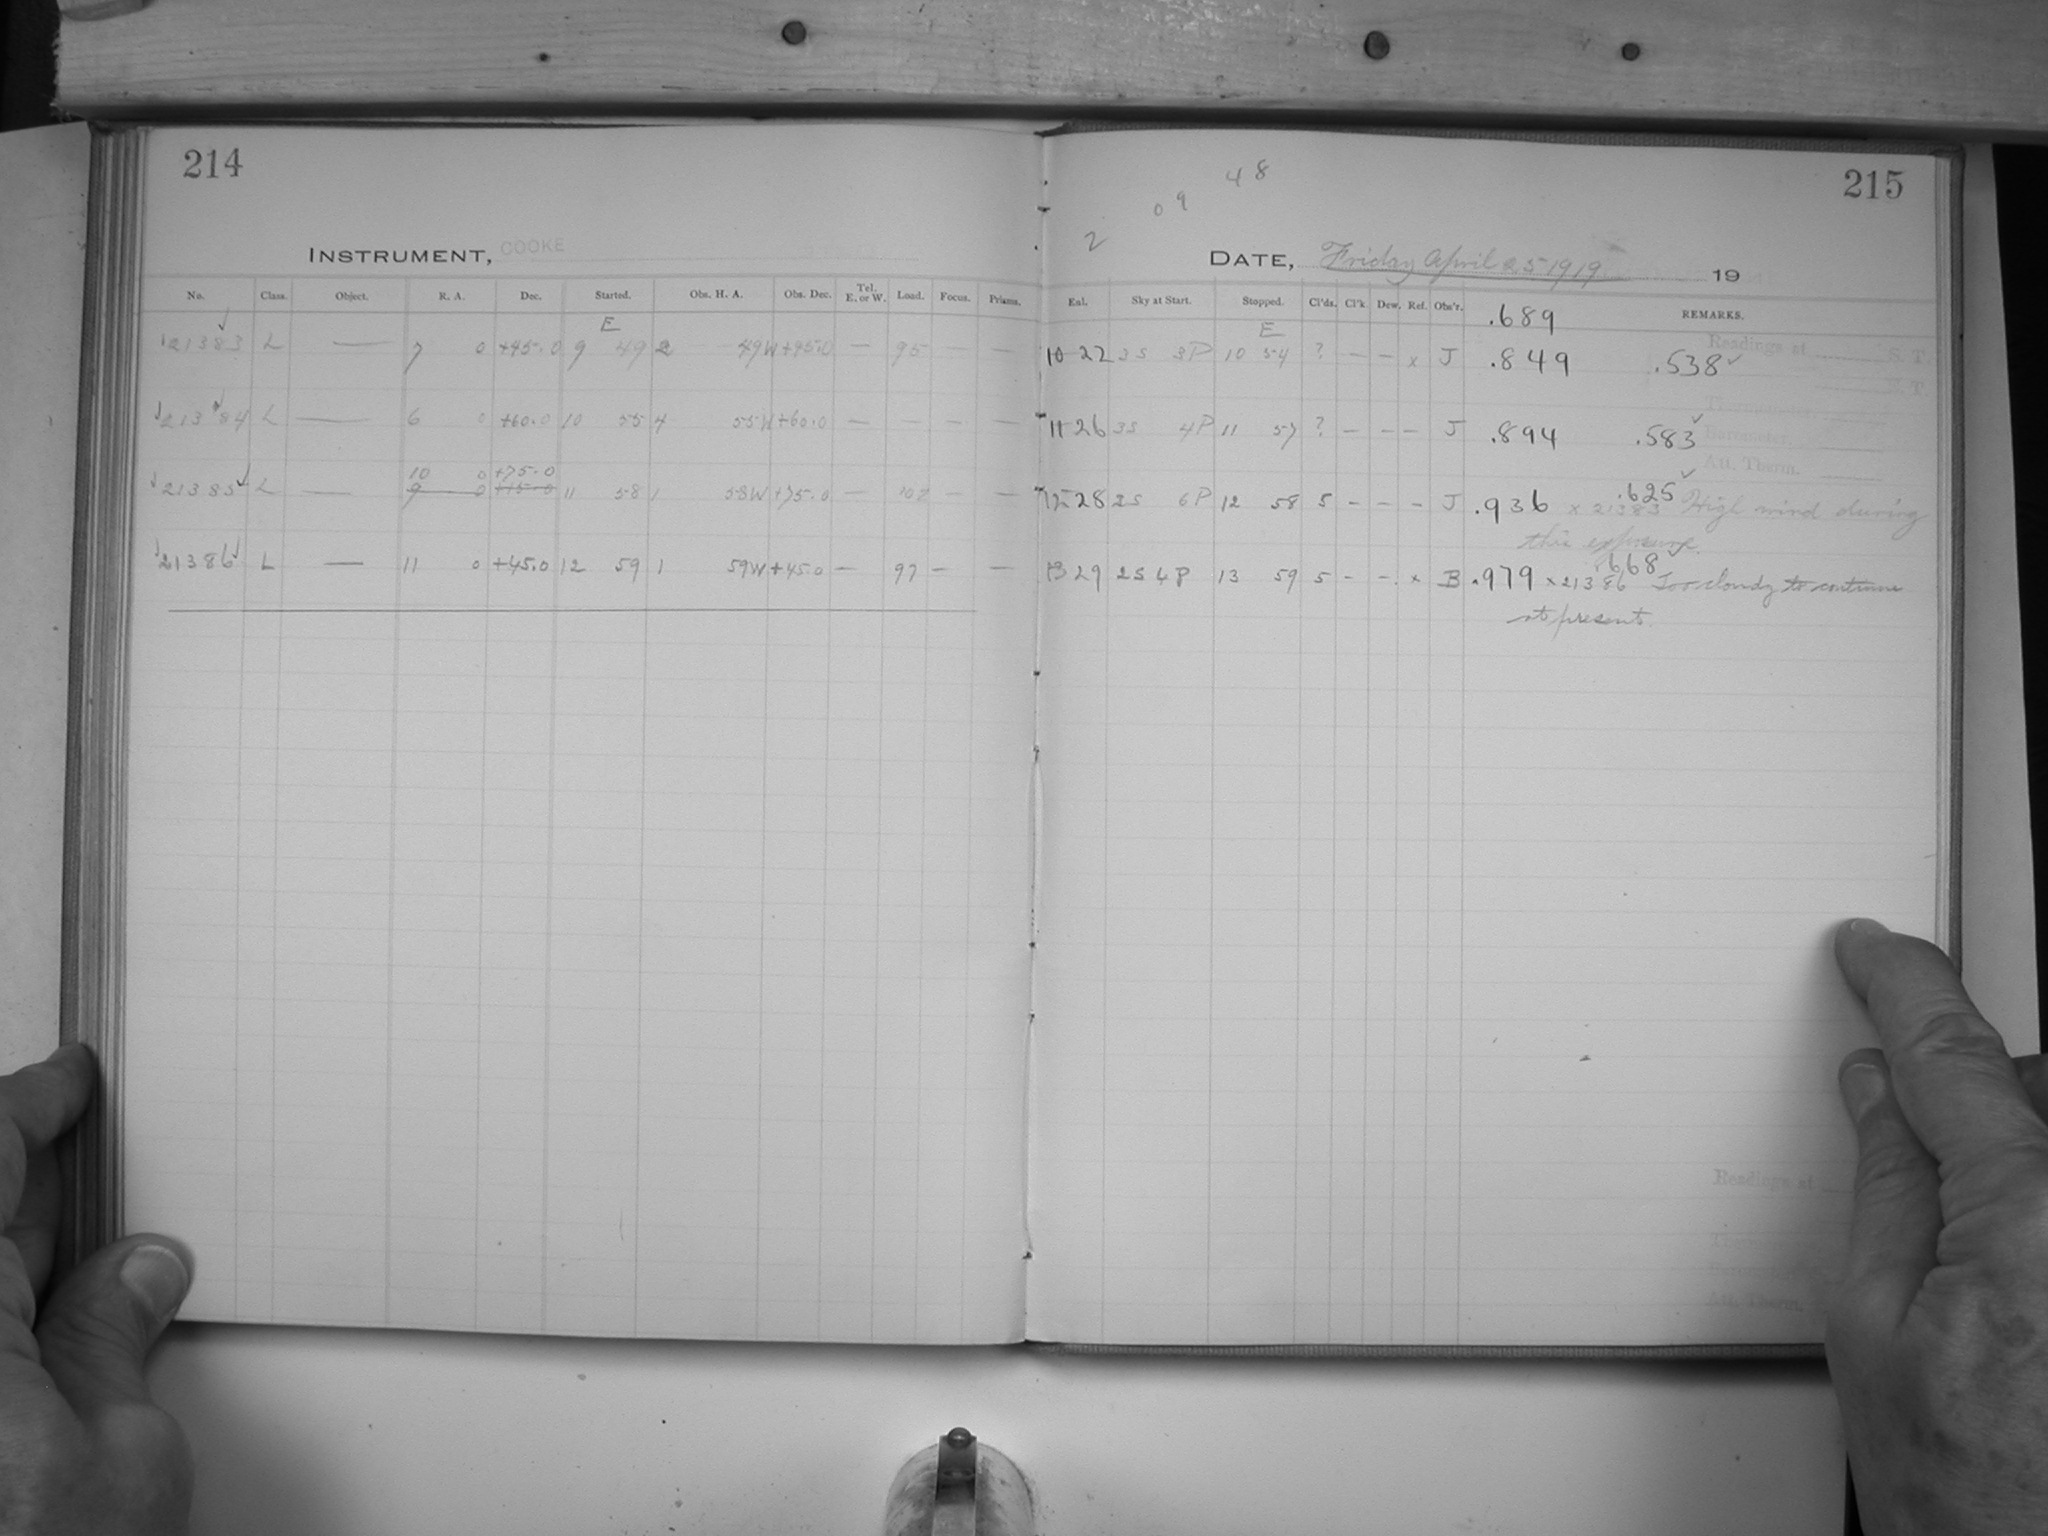 214
INSTRUMENT, COOKE
No. Class. Object. R. A. Dec. Started. Obs. H. A. Obs. Dec. Tel. E. or W. Load. Focus. Prisms.
E
21383 L — 7 0 +45.0 9 49 2 49W +45.0 — 95 — —
21384 L — 6 0 +60.0 10 55 4 55W +60.0 — — — —
10 0 +75.0
21385 L — 9 0 +75.0 11 58 1 58W +75.0 — 102 — —
21386 L — 11 0 +45.0 12 59 1 59W +45.0 — 97 — —
4 8
0 9
2
215
DATE, Friday April 25 1919 19
Exl. Sky at Start. Stopped. Cl'ds. Cl'k. Dew. Ref. Obs'r. REMARKS.
.689
E
10 22 3S 3P 10 54 ? — — x J .849 .538 ✓
11 26 3S 4P 11 57 ? — — — J .894 .583 ✓
.625 ✓
12 28 2S 6P 12 58 5 — — — J .936 x 21383 High wind during
this exposure.
.668 ✓
13 29 2S 4P 13 59 5 — — x B .979 x 21386 Too cloudy to continue
at present.
Readings at S. T.
S. T.
Barometer,
Att. Therm.
Readings at
Att. Therm.